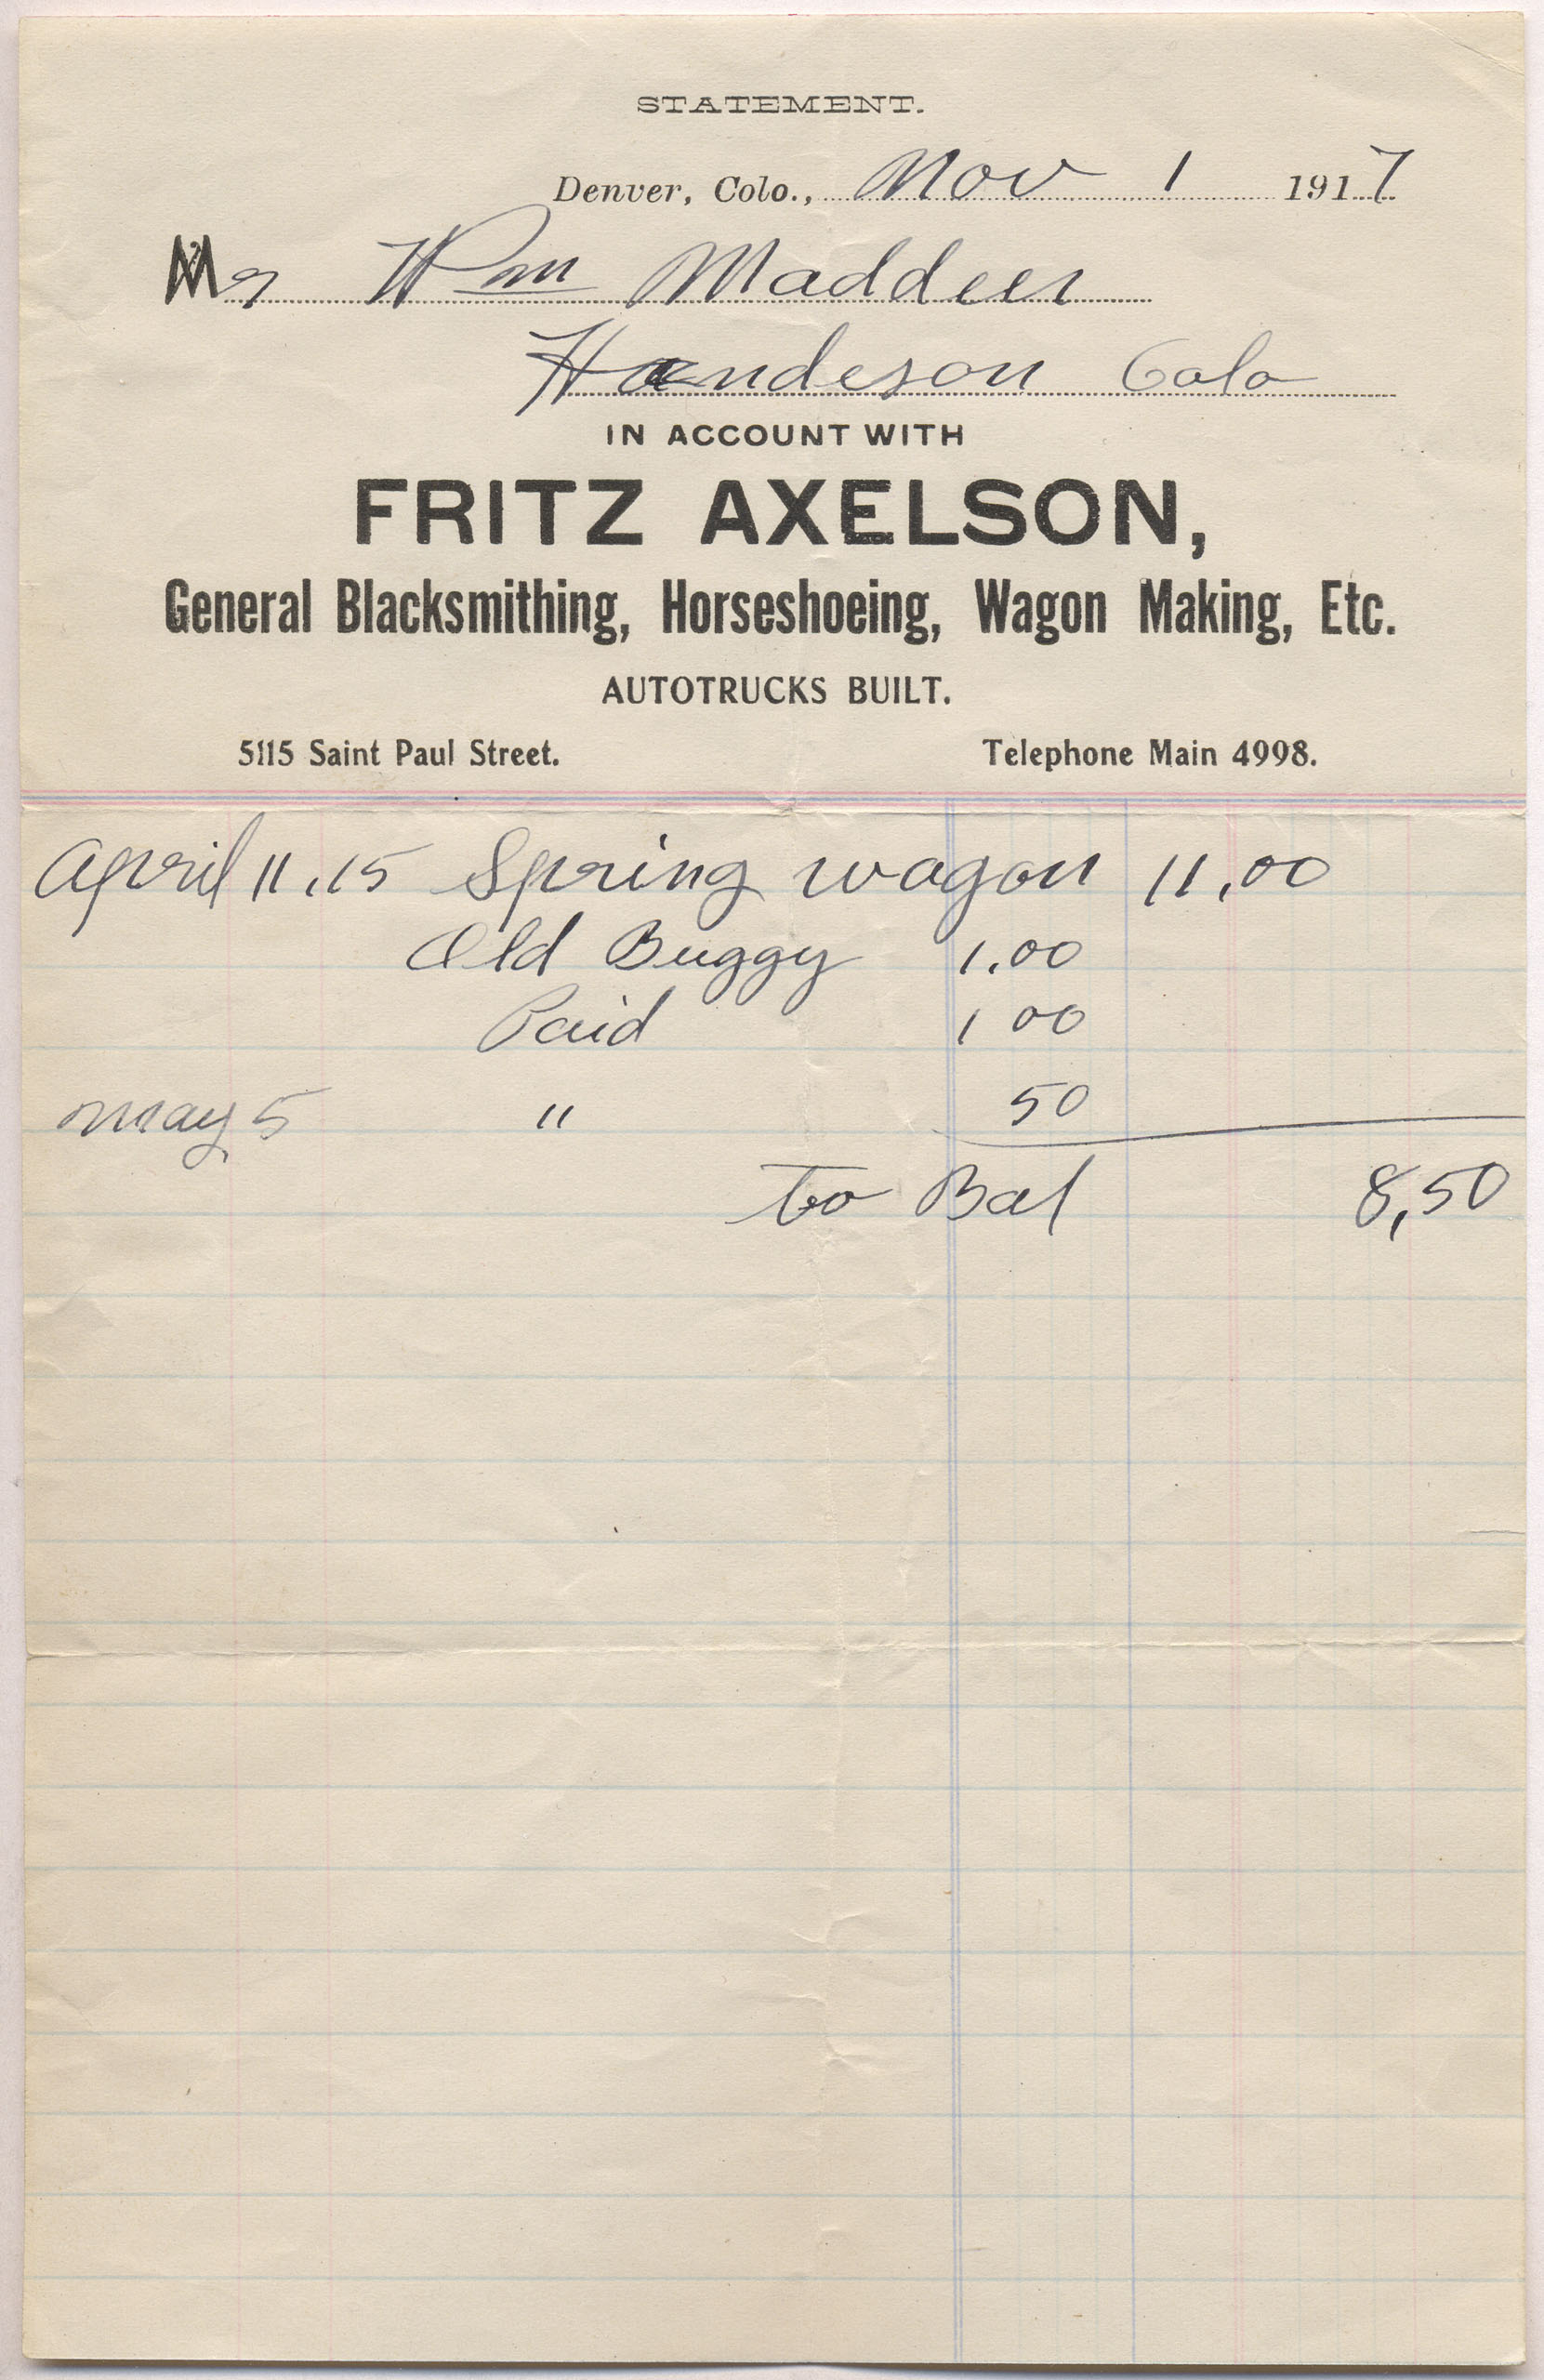 STATEMENT.
Denver, Colo., Nov 1 1917
Mr Wm Madden
Handeson Colo
IN ACCOUNT WITH
FRITZ AXELSON,
General Blacksmithing, Horseshoeing, Wagon Making, Etc.
AUTOTRUCKS BUILT.
5115 Saint Paul Street. Telephone Main 4998.
April 11, 15 Spring wagon 11.00
Old Buggy 1.00
Paid 1 00
May 5 " 50
to Bal 8,50